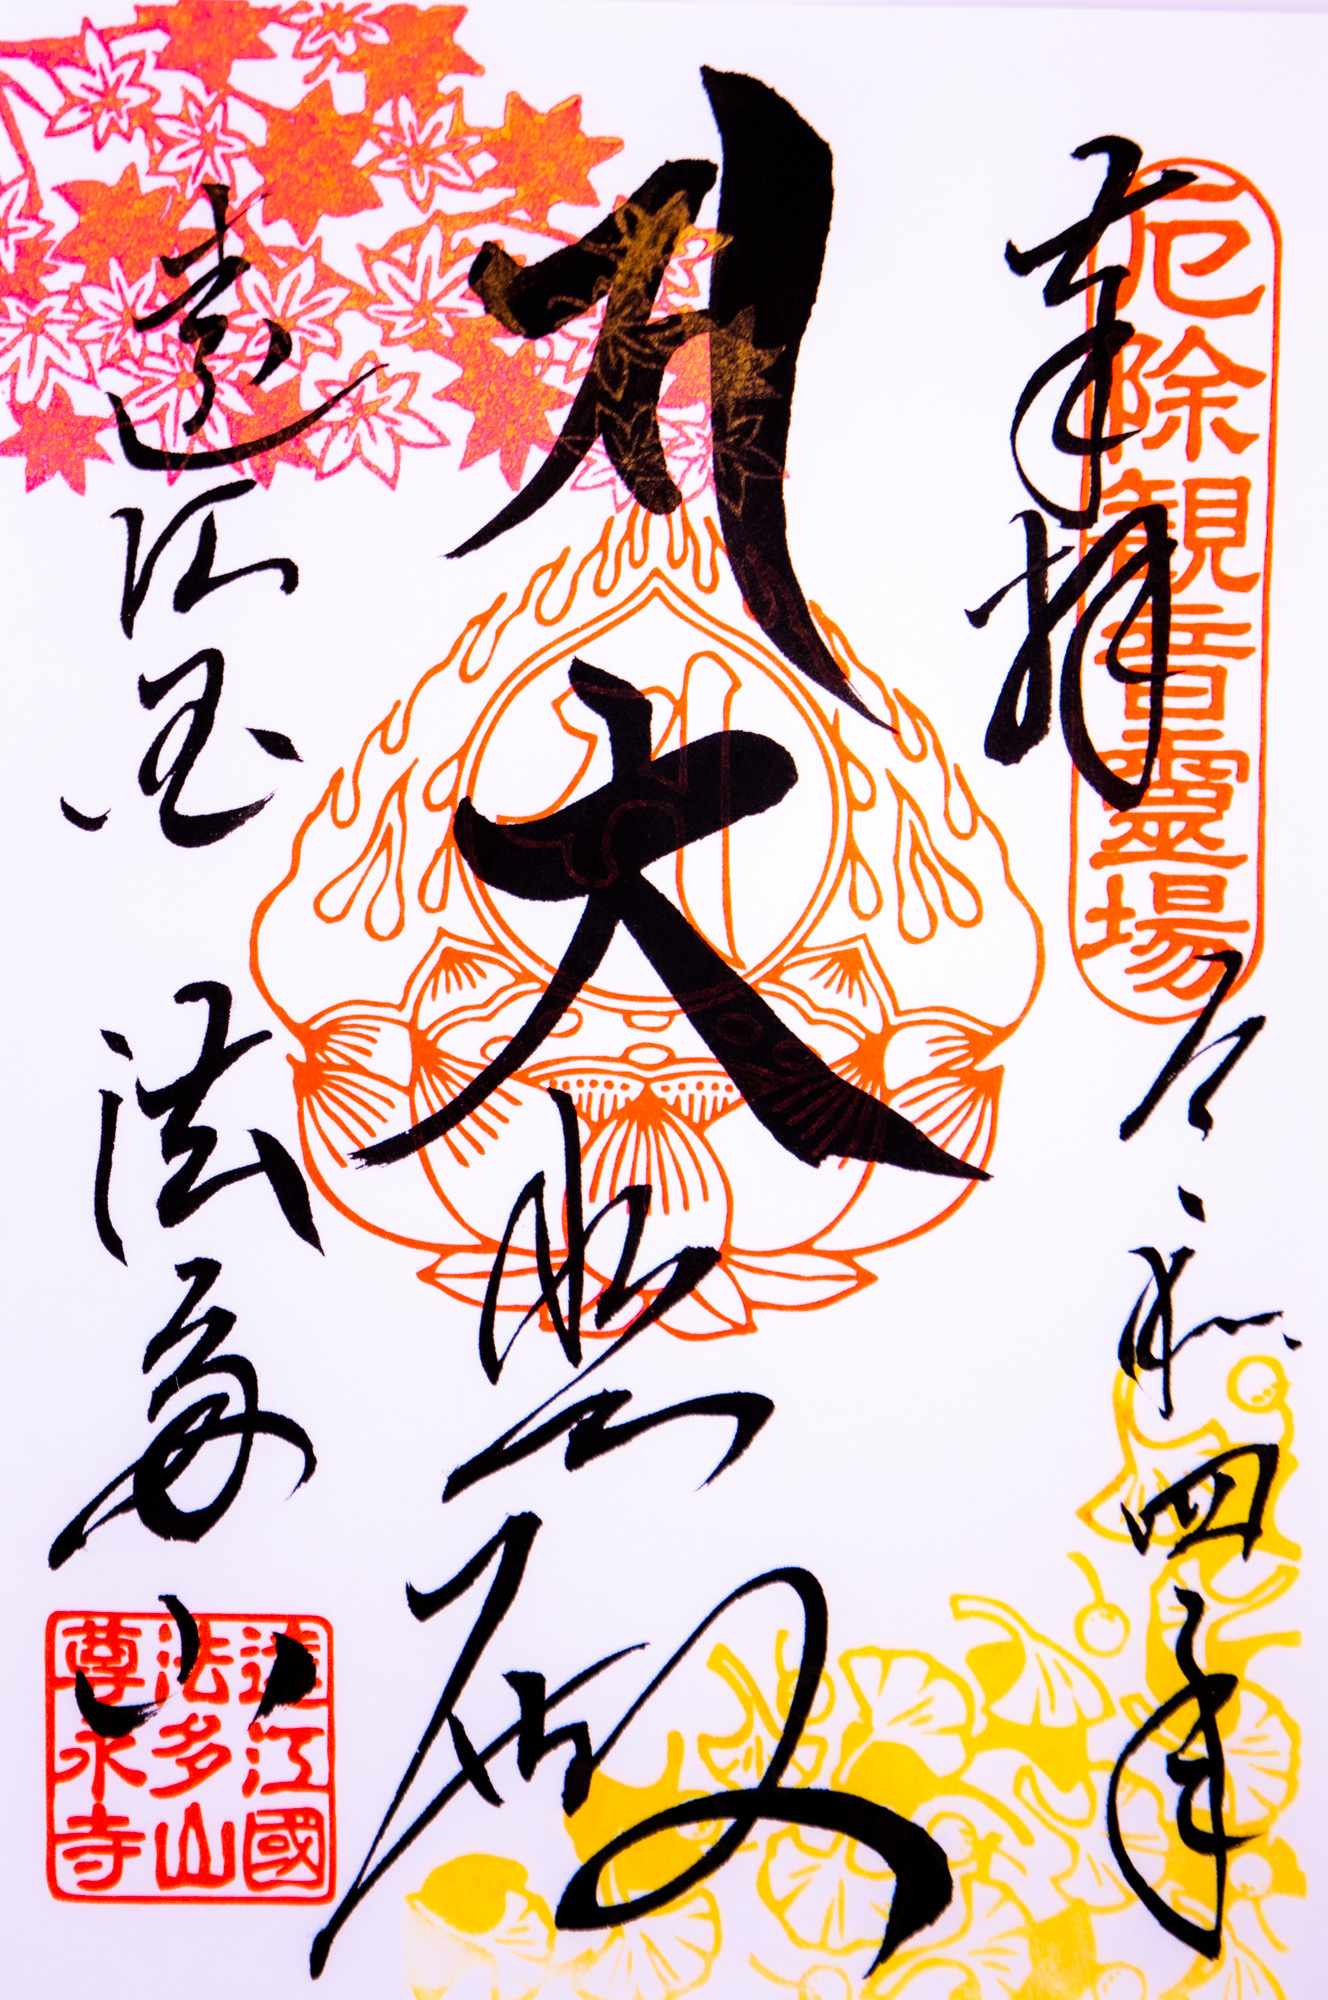 厄除観音霊場
奉拝
令和四年
大悲殿
遠江国
法多山
遠江國
法多山
尊永寺